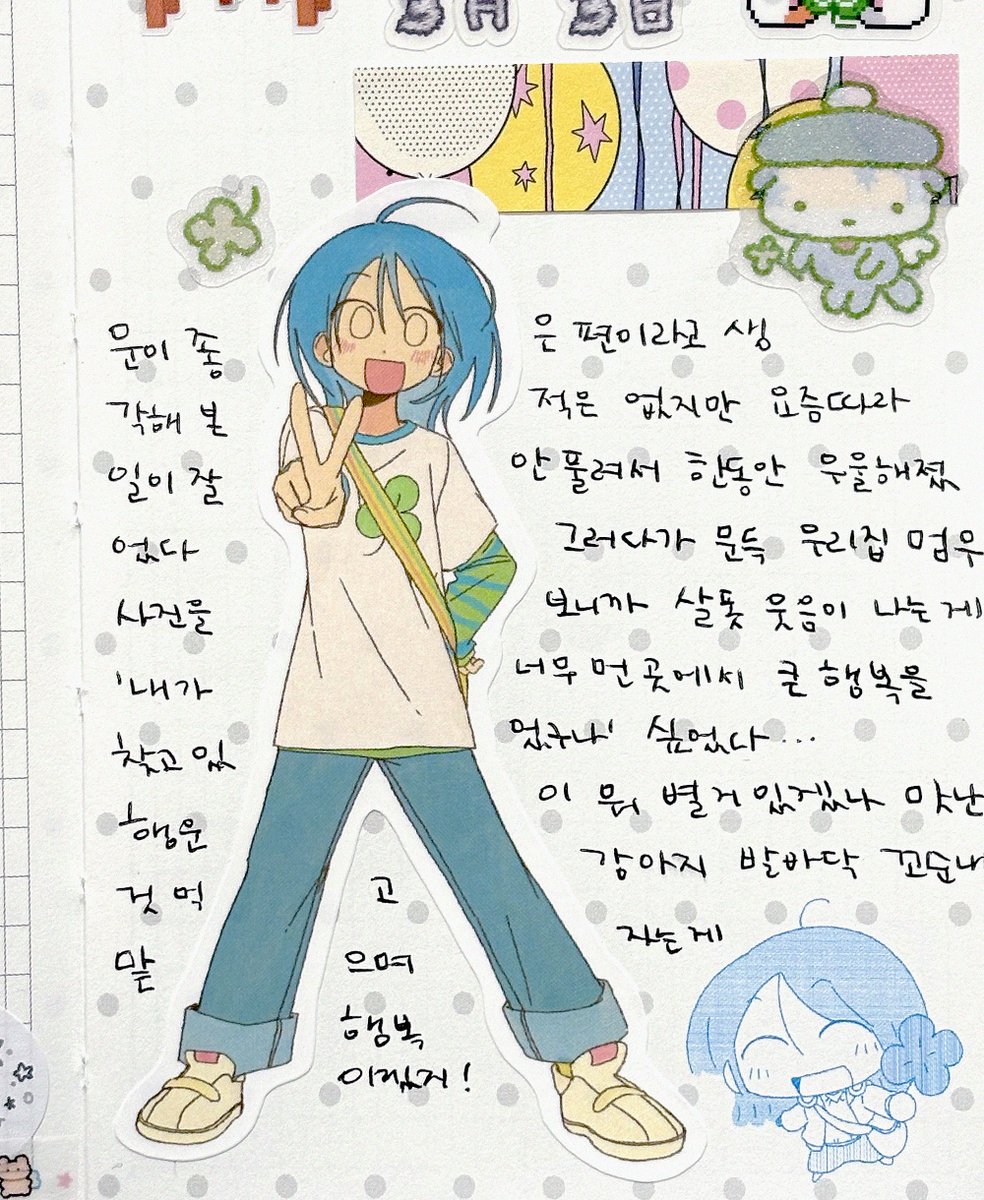 운이 좋은 편이라고 생
각해 본 적은 없지만 요즘따라
일이 잘 안 풀려서 한동안 우울해졌
었다 그러다가 문득 우리집 멈우
사진을 보니까 살풋 웃음이 나는게
'내가 너무 먼 곳에서 큰 행복을
찾고 있었구나' 싶었다...
행운이 뭐 별거 있겠나 맛난
것 먹고 강아지 발바닥 꼬순내
맡으며 자는게
행복
이겠지!